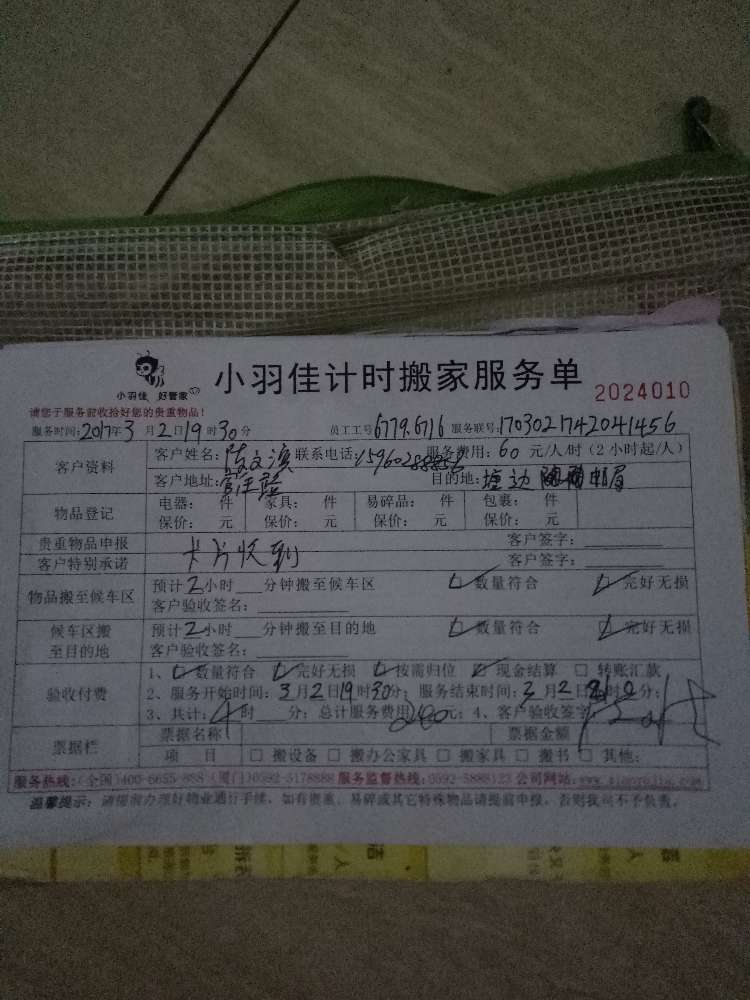 小羽佳 好管家
小羽佳计时搬家服务单
2024010
请您于服务前收拾好您的贵重物品！
服务时间：2017年3月2日19时30分 员工工号6779.6716 服务联号：1703021742041456
客户资料
客户姓名：陈文滨 联系电话：15960288856 服务费用：60元/人/时（2小时起/人）
客户地址： 目的地：塘边 邮局
物品登记
电器： 件 家具： 件 易碎品： 件 包裹： 件
保价： 元 保价： 元 保价： 元 保价： 元
贵重物品申报 客户签字：
客户特别承诺 卡片收到 客户签字：
物品搬至候车区
预计2小时 分钟搬至候车区 数量符合 完好无损
客户验收签名：
候车区搬至目的地
预计2小时 分钟搬至目的地 数量符合 完好无损
客户验收签名：
验收付费
1、数量符合 完好无损 按需归位 现金结算 转账汇款
2、服务开始时间：3月2日19时30分；服务结束时间：3月2日 时 分；
3、共计：4时 分；总计服务费用240元；4、客户验收签字
票据栏
票据名称 票据金额
项 目 搬设备 搬办公家具 搬家具 搬书 其他：
服务热线：（全国）400-6655-888（厦门）0592-5178888 服务监督热线：0592-5888123 公司网站：www.xiaoyujia.com
温馨提示：请提前办理好物业通行手续，如有贵重、易碎或其它特殊物品请提前申报，否则我司不予负责。